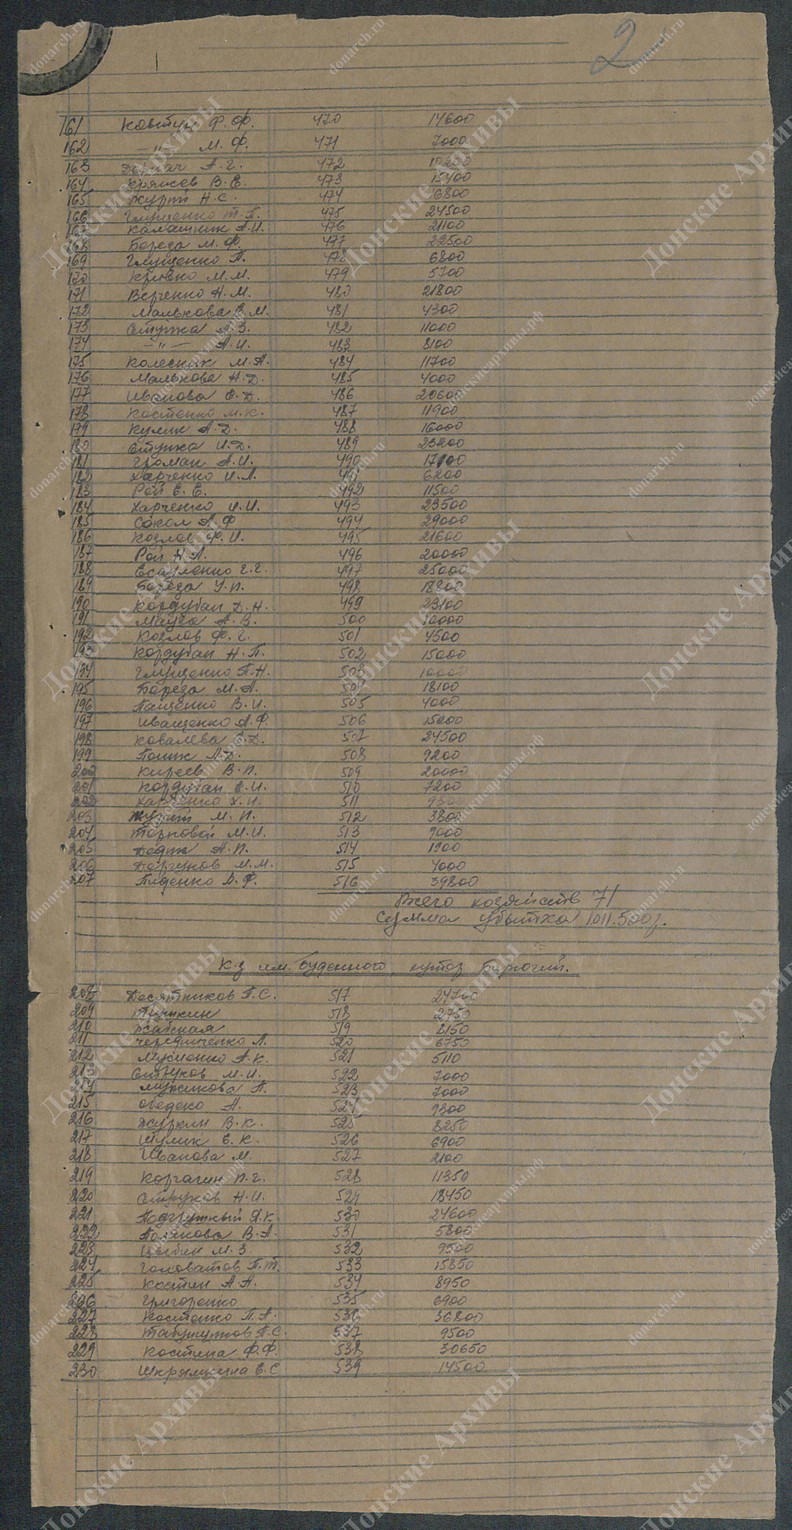 2
161 Ковтун Ф.Ф. 470 14600
162 —"— М.Ф. 471 7000
163 А.Г. 472
164 Кряжев В.Е. 473 15400
165 Журий Н.С. 474 6800
166 Глущенко Т.П. 475 24500
167 Калашник А.И. 476 21100
168 Береза М.Ф. 477 22500
169 Глущенко П. 478 6800
170 М.М. 479 5700
171 Верченко Н.М. 480 21800
172 Малькова Е.М. 481 4300
173 Стужка А.З. 482 11000
174 —"— А.И. 483 8100
175 Колесник М.А. 484 11700
176 Малькова Н.Д. 485 4000
177 Иванова Е.Д. 486 20600
178 Костенко М.К. 487 11900
179 Кулик А.Д. 488 16000
180 Стужка И.Д. 489 23200
181 Громан А.И. 490 17100
182 Харченко И.Л. 491 6200
183 Рой Е.Е. 492 11500
184 Харченко И.И. 493 23500
185 Сокол А.Ф 494 29000
186 Козлов Ф.И. 495 21600
187 Рой Н.А. 496 20000
188 Есауленко Г.Г. 497 25000
189 Береза У.П. 498 18800
190 Кордубан Д.Н. 499 23100
191 А.В. 500 10000
192 Козлов Ф.Г. 501 4500
193 Кордубан Н.П. 502 15000
194 Глущенко П.Н. 503 10000
195 Береза М.А. 504 18100
196 Пащенко В.И. 505 4000
197 Иващенко А.Ф. 506 15200
198 Ковалева Е.Д. 507 24500
199 А.Д. 508 9200
200 Киреев В.П. 509 20000
201 Кордубан Е.И. 510 7200
202 Харченко Х.И. 511
203 Журий М.И. 512 3800
204 Терновой М.И. 513 9000
205 А.П. 514 1900
206 М.М. 515 4000
207 Диденко Д.Ф. 516 39800
Всего хозяйств 71
Сумма убытка 1011.500р.
К-з им. Буденного хутор
208 Десятников П.С. 517 24700
209 518 2750
210 519 2150
211 Чередниченко Л. 520 6750
212 Лукиенко А.К. 521 5110
213 Струков М.И. 522 7000
214 П. 523 7000
215 А. 524 9800
216 В.К. 525 8250
217 Шулик Е.К. 526 6900
218 Иванова М. 527 2100
219 Корчагин П.Г. 528 11350
220 Струков Н.И. 529 18450
221 Подгрушный Я.К. 530 24600
222 Полякова В.А. 531 5800
223 Цыбин М.З. 532 9500
224 Головатов П.Т. 533 15850
225 Костин А.А. 534 8950
226 Григоренко 535 6900
227 Костенко П.А. 536 36800
228 Табунщиков А.С. 537 9500
229 Костина Ф.Ф. 538 30650
230 Шкрылкина Е.С 539 14500
Донские Архивы
donarch.ru
донскиеархивы.рф